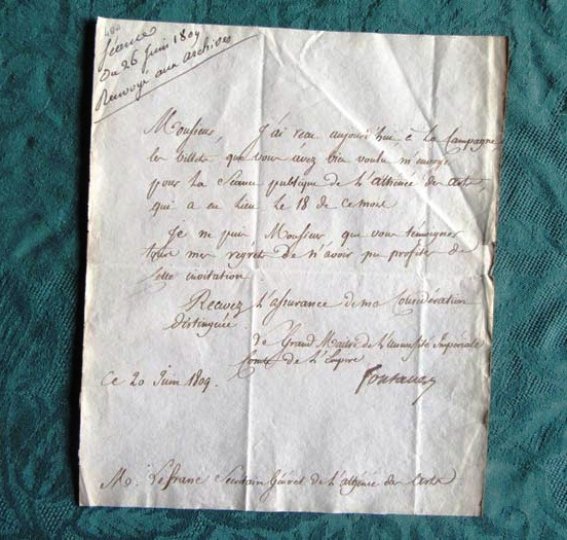 Séance
du 26 juin 1809
Renvoyé aux archives
Monsieur, J'ai reçu aujourd'hui à la Campagne
les billets que vous avez bien voulu m'envoyer
pour la Séance publique de l'athénée des arts,
qui a eu lieu le 18 de ce mois.
Je ne puis Monsieur que vous témoigner
tous mes regrets de n'avoir pu profiter de
cette invitation
Recevez l'assurance de ma Considération
distinguée.
Le Grand Maitre de l'université Impériale
Comte de l'Empire
Ce 20 Juin 1809.
Fontanes
M. Lefranc Secrétaire Général de l'athénée des arts